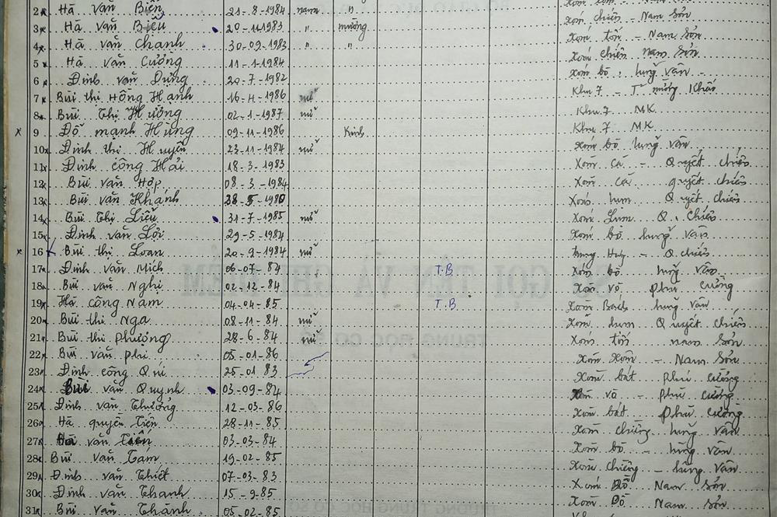 2 Hà văn Biên 21-8-1984 nam "
3 Hà văn Biểu 20-11-1983 " mường xóm chiến - Nam Sơn
4 Hà văn Chanh 30-09-1983 " " Xóm tớn - Nam Sơn
5 Hà văn Cường 11-1-1984 Xóm chiến Nam Sơn
6 Đinh văn Dụng 20-7-1982 xóm bò lũng vân
7 Bùi thị Hồng Hạnh 16-4-1986 nữ Khu 7
8 Bùi thị Hường 02-1-1987 nữ Khu 7 MK
9 Đỗ mạnh Hùng 09-11-1986 Kinh Khu 7 MK
10 Đinh thị Huyền 23-11-1984 nữ Xóm bò lũng vân
11 Đinh công Hải 18-3-1983 Xóm cá - Quyết chiến
12 Bùi văn Hợp 08-3-1984 Xóm cá quyết chiến
13 Bùi văn Khánh 28-5-1980 Xóm lum Quyết chiến
14 Bùi thị Liệu 31-7-1985 nữ Xóm Lum Q. Chiến
15 Đinh văn Lội 29-5-1984 Xóm bò lũng vân
16 Bùi thị Loan 20-9-1984 nữ - Q chiến
17 Đinh văn Mích 06-07-84 T.B Xóm bò lũng vân
18 Bùi văn Nghị 02-12-84 Xóm võ phú cường
19 Hà công Nam 04-04-85 T.B Xóm Bách lũng vân
20 Bùi thị Nga 08-11-84 nữ Xóm lum Quyết chiến
21 Bùi thị phượng 28-6-84 nữ Xóm tớn nam sơn
22 Bùi văn phi 05-01-86 Xóm Xôm - Nam Sơn
23 Đinh công Quí 25-01-83 Xóm bát phú cường
24 Bùi văn Quynh 03-09-84 Xóm võ - phú cường
25 Đinh văn Thưởng 12-03-86 Xóm bát phú cường
26 Hà quyết Tiến 28-11-85 Xóm chiềng - lũng vân
27 Hà văn Tiến 03-03-84 Xóm bò - lũng vân
28 Bùi văn Tám 19-02-85 Xóm chiềng - lũng vân
29 Đinh văn Thiết 07-03-83 Xóm Đồ Nam Sơn
30 Đinh văn Thanh 15-9-85 Xóm Đồ Nam Sơn
31 Bùi văn Thành 05-02-85